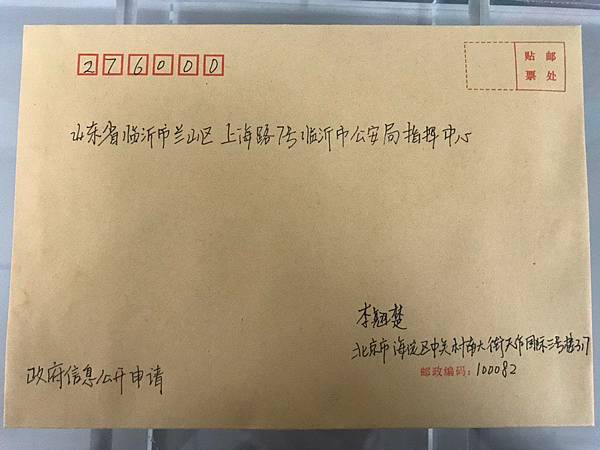 276000
贴 邮
票 处
山东省临沂市兰山区 上海路7号临沂市公安局指挥中心
李翘楚
北京市海淀区中关村南大街天作国际三号楼317
邮政编码：100082
政府信息公开申请